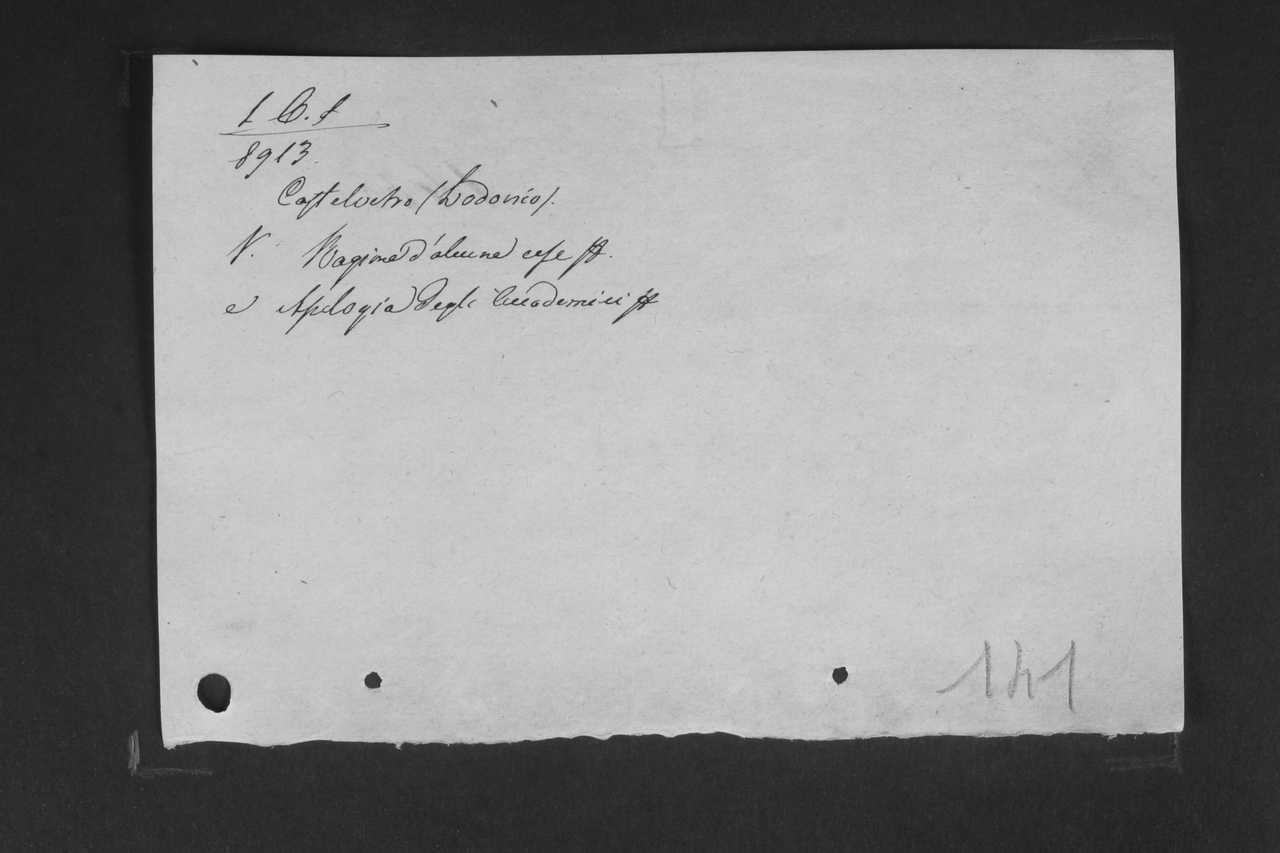 1 B. f
8913.
Castelvetro (Lodovico).
V. Ragione d'alcune cose
e Apologia degli Accademici
141